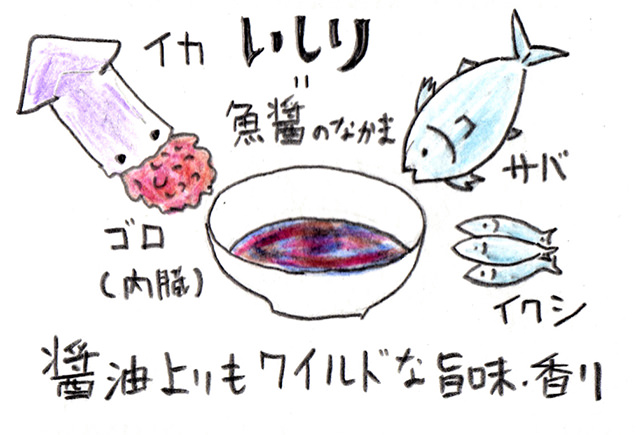 イカ
いしり
=
魚醤のなかま
サバ
ゴロ
(内臓)
イワシ
醤油よりもワイルドな旨味・香り